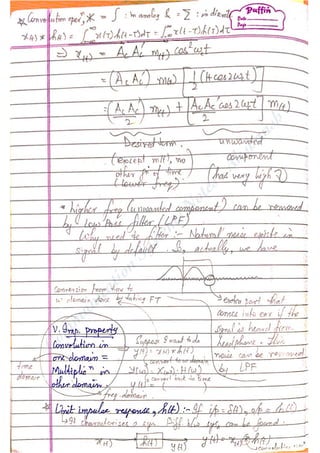 * Convolution oper^n, * = ∫ : in analog & = Σ : in discrete
Puffin
Date
Page
x(t) * h(t) = ∫ x(τ) h(t-τ) dτ = ∫ x(t-τ) h(τ) dτ
⇒ x(t) = Ac Ac' m(t) cos² ωct
= (Ac Ac') m(t) [ 1/2 (1+cos 2ωct) ]
= (Ac Ac' / 2) m(t) + [ Ac Ac' cos 2ωct / 2 ] m(t)
Desired term. unwanted
(except m(t), no component
other f^n of time (has very high f)
(lower freq)
* higher freq (unwanted component) can be removed
by low Pass filter (LPF)
Why need to filter :- Natural noise exists in
signal by default. So, actually, we have
conversion from t to
ω domain done by taking FT
→ extra part that
comes into ear if the
signal is heard from
headphone. This
noise can be removed
by LPF
V. Imp. property
Convolution in
one domain =
Multiplic^n in
other domain.
time domain
freq. domain
Suppose I want to do
y(t) = x(t) * h(t)
convert to ω domain
Y(ω) = X(ω) · H(ω)
convert back to time
y(t) = ( )
* Unit impulse response, h(t) :- If i/p = δ(t), o/p = h(t)
↳ It characterises a sys. Diff. o/p sys. can be found.
x(t) → h(t) → y(t) y(t) = x(t) * h(t)
convolution